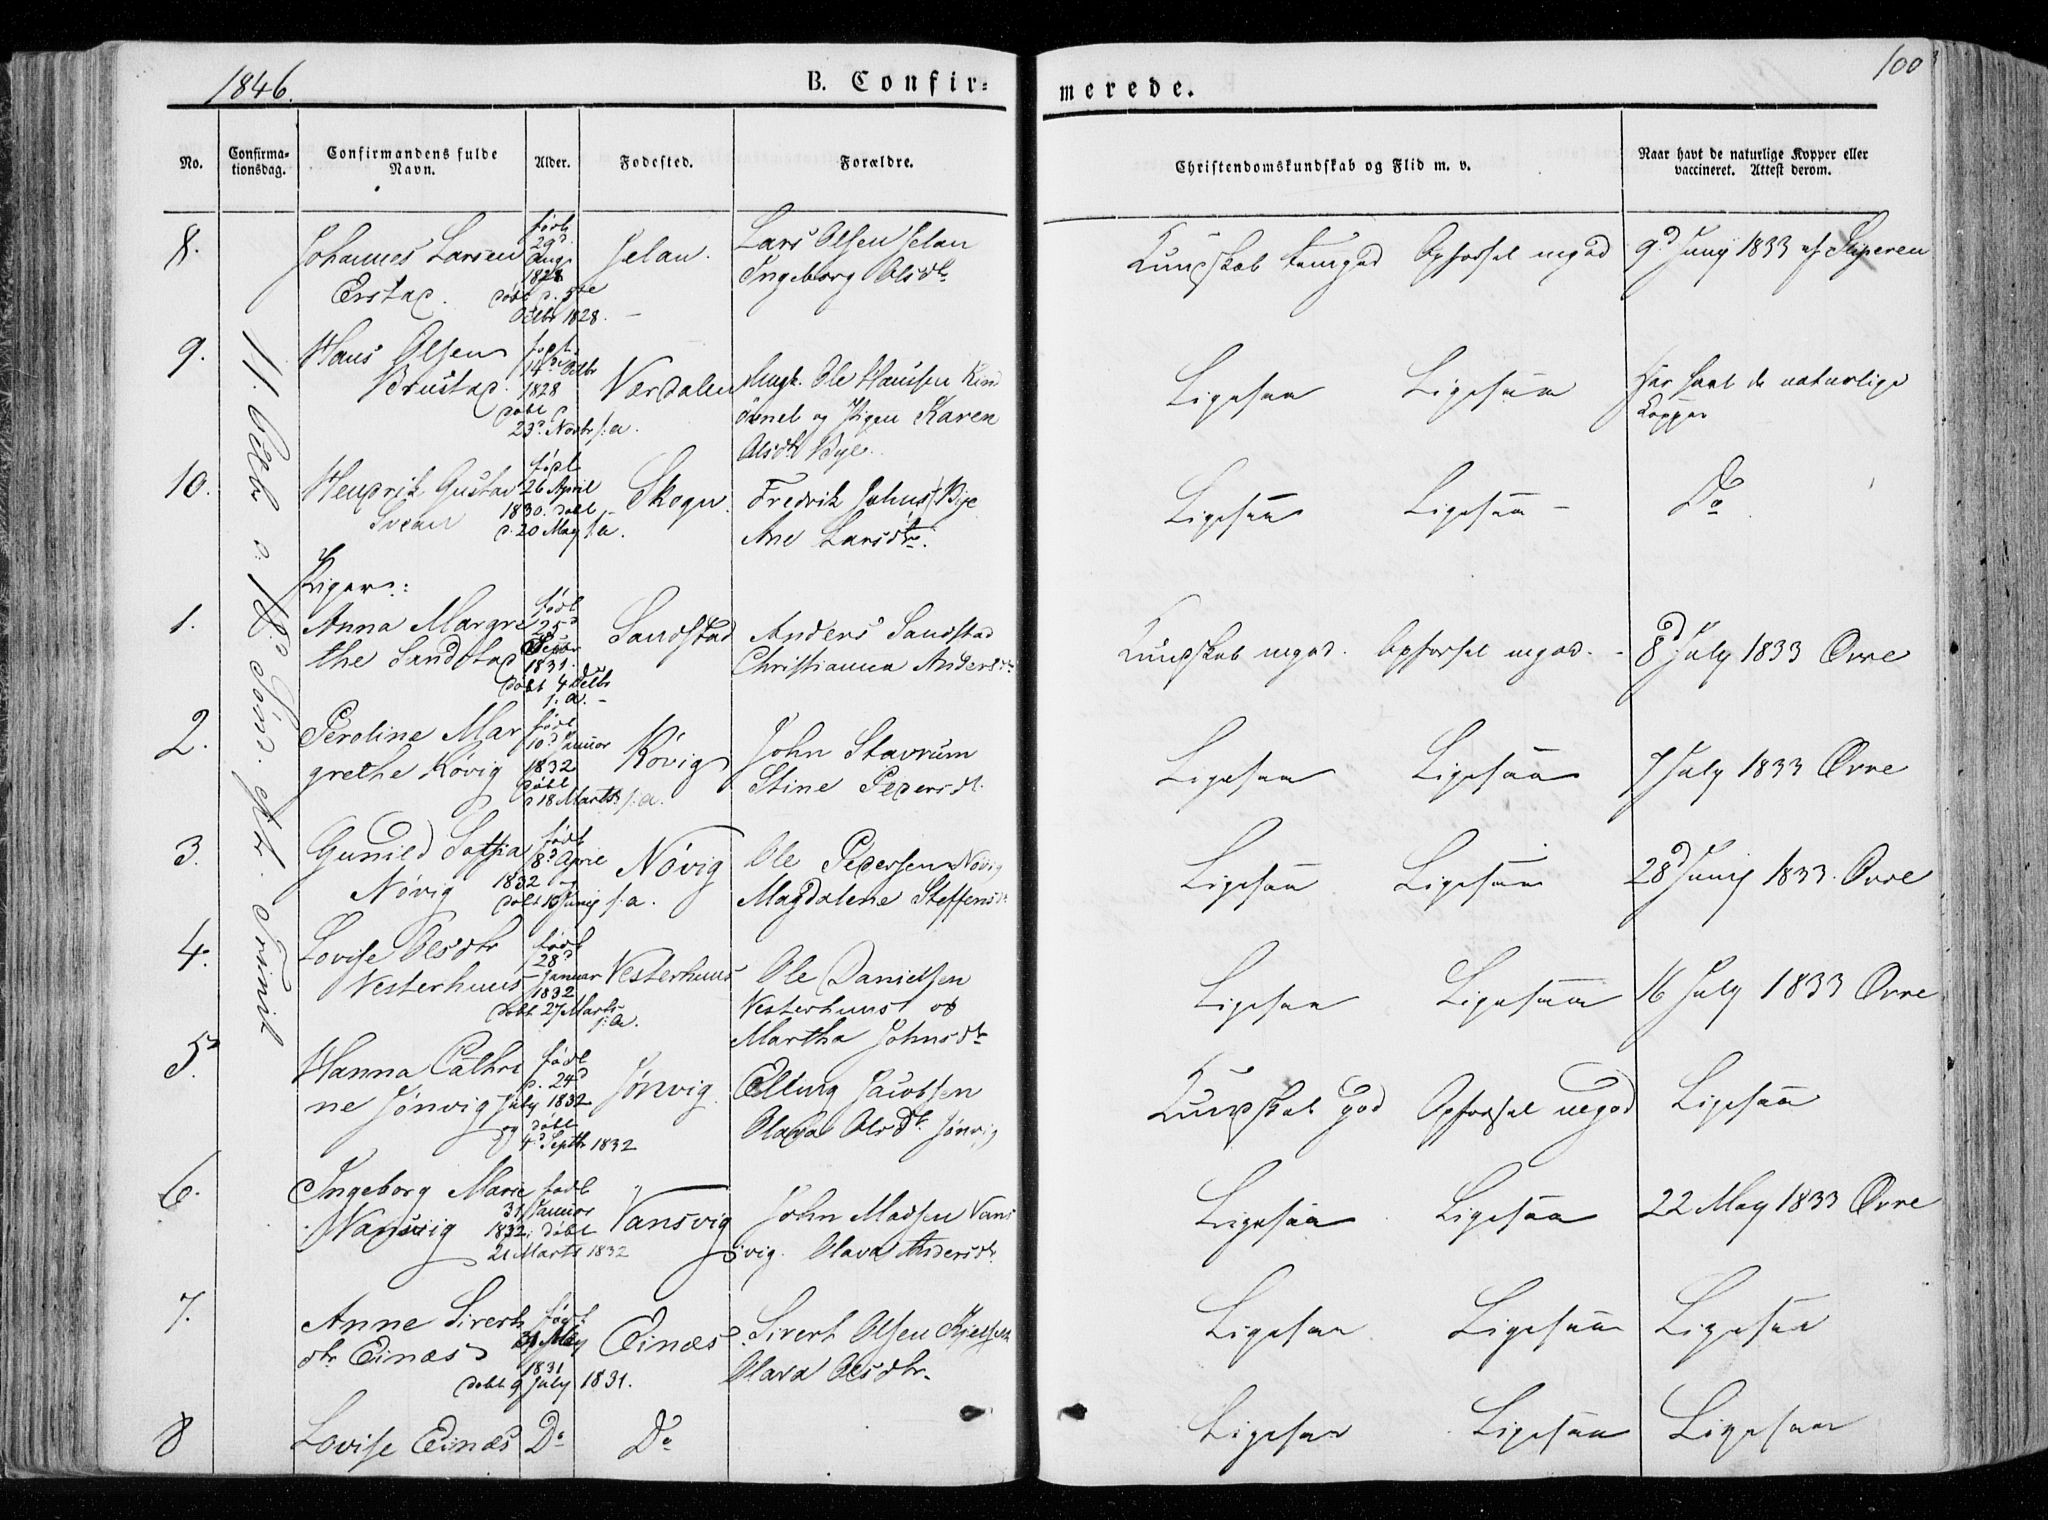 1846.
B. Confir-
merede.
100
No.
Confirma-
tionsdag.
Confirmandens fulde
Navn.
Alder.
Fodested.
Forældre.
Christendomskundskab og Flid m. v.
Naar havt de naturlige Kopper eller
vaccineret. Attest derom.
18d Sønd. eft. Trinit
8.
Johannes Larsen
Erstad.
født
29d
Aug
1828
døbt d. 5te
Octbr 1828.
Jelan.
Lars Olsen Jelan
Ingeborg Olsdtr
Kundskab temgod Opførsel mgod
9d Juny 1833 af
9.
Hans Olsen
født
14de Octbr
1828
døbt d
23d Novbr s: a.
Værdalen
Ole Hansen
og Pigen Karen
Olsdtr Bye.
Ligesaa Ligesaa
Har havt de naturlige
Kopper
10.
Hendrik Gustav
Svean
født
26 April
1830. døbt
d. 20 May s: a.
Skogn.
Fredrik Johns: Bye
Ane Larsdtr.
Ligesaa Ligesaa
Do
Piger:
1.
Anna Margre
the Sandstad
født
25d
Septbr
1831.
døbt 4 Octbr
s. a.
Sandstad
Anders Sandstad
Christianna Andersdtr
Kundskab mgod. Opførsel mgod.
8d July 1833 Øvre
2.
Peroline Mar
grethe Kövig
født
10d Januar
1832
døbt
d 18 Marts s: a.
Kövig
John Stavrum
Stine Pedersdt.
Ligesaa Ligesaa
7 July 1833 Øvre
3.
Gunild Sophia
Növig
født
8d April
1832 og
døbt 10 Junij s: a.
Növig
Ole Pedersen Növig
Magdalene Steffensdt
Ligesaa Ligesaa
28d Junij 1833. Øvre
4.
Lovise Olsdtr
Vesterhuus
født
28d
Januar
1832
døbt 27 Marts
s: a.
Vesterhuus
Ole Danielsen
Vesterhuus og
Martha Johnsdtr
Ligesaa Ligesaa
16 July 1833 Øvre
5.
Hanna Cathri
ne Jönvig
født
d. 24d
July 1832
og døbt
4d Septbr 1832
Jönvig
Elling Jacobsen
Olava Olsdtr. Jönvig
Kundskab god Opførsel megod
Ligesaa
6.
Ingeborg Marie
Vansvig
født
31 Januar
1832, døbt
21 Marts 1832
Vansvig
John Madsen Vans
vig. Olava Andersdtr
Ligesaa Ligesaa
22 May 1833 Øvre
7.
Anne Siverts
dtr Einæs
født
31 May
1831
døbt 9 July 1831.
Einæs
Sivert Olsen
Olava Olsdtr.
Ligesaa Ligesaa Ligesaa
8
Lovise Einæs
Do
Do
Ligesaa Ligesaa Ligesaa